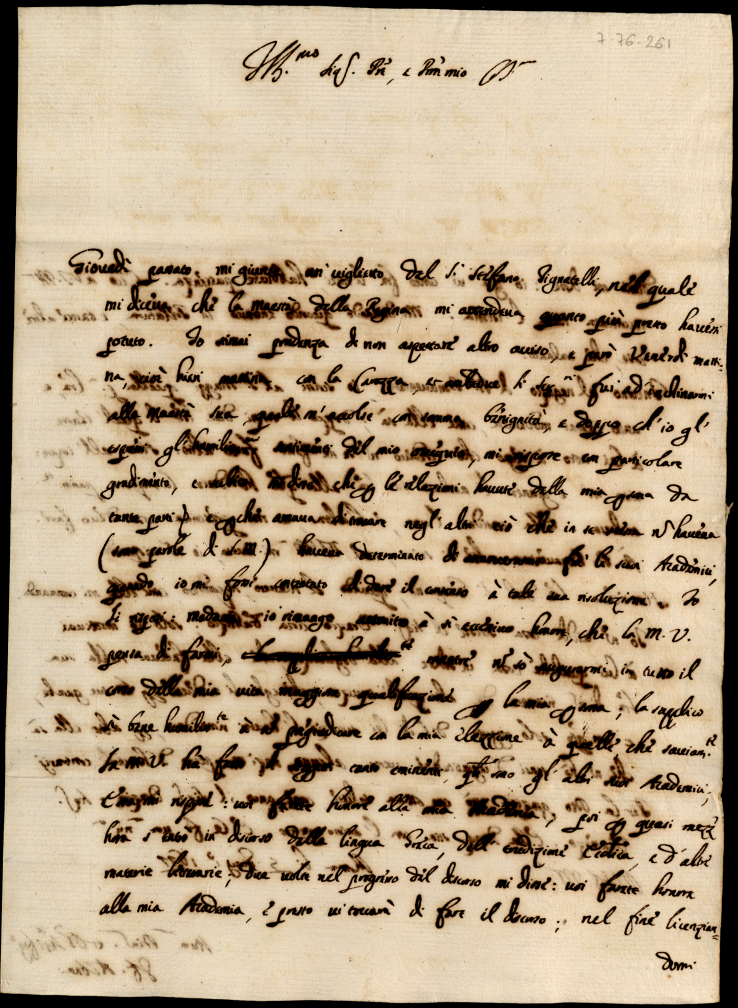 7-76-261
Ill.mo Sig.r P.re, e P.ron mio
Giovedì passato mi giunse un viglietto del S.r Stefano Pignatelli, nel quale
mi diceva che la Maestà della Regina mi attendeva quanto più presto havessi
potuto. Io stimai prudenza di non aspettare altro aviso, e però Venerdì matti-
na, cioè hieri mattina con la Carozza, et fui ad inchinarmi
alla Maestà sua, quale m'accolse con somma benignità, e doppo ch'io gl'
espressi gl'humilissimi sentimenti del mio ossequio, mi rispose con particolare
gradimento, e mi disse che p le relazioni havute della mia p.sona da
tante parti, e p che amava di trovare negl'altri ciò che in se stessa nō haveva
(sono parole di S.M.) haveva determinato di fra li suoi Academici,
quando io mi fossi contentato di dare il consenso à tale sua risoluzione. Io
li risposi: madama, io rimango attonito à sì eccessivo honore, che la M. V.
pensa di farmi, mentre nō sò augurarmi in tutto il
corso della mia vita maggiore qualificazione p la mia p.sona; la supplico
à bene à nō pregiudicare con la mia elezzione à quelle che
la M.V. hà fatto di soggetti tanto eminenti, quali sono gl'altri suoi Academici;
rispose: voi farete honore alla mia Academia, poi p quasi mezz'
hora s'entrò in discorso della lingua Greca, dell'erudizione e d'altre
materie literarie, due volte nel progresso del discorso mi disse: voi farete honore
alla mia Academia, e presto vi toccarà di fare il discorso; nel fine licenzian-
domi